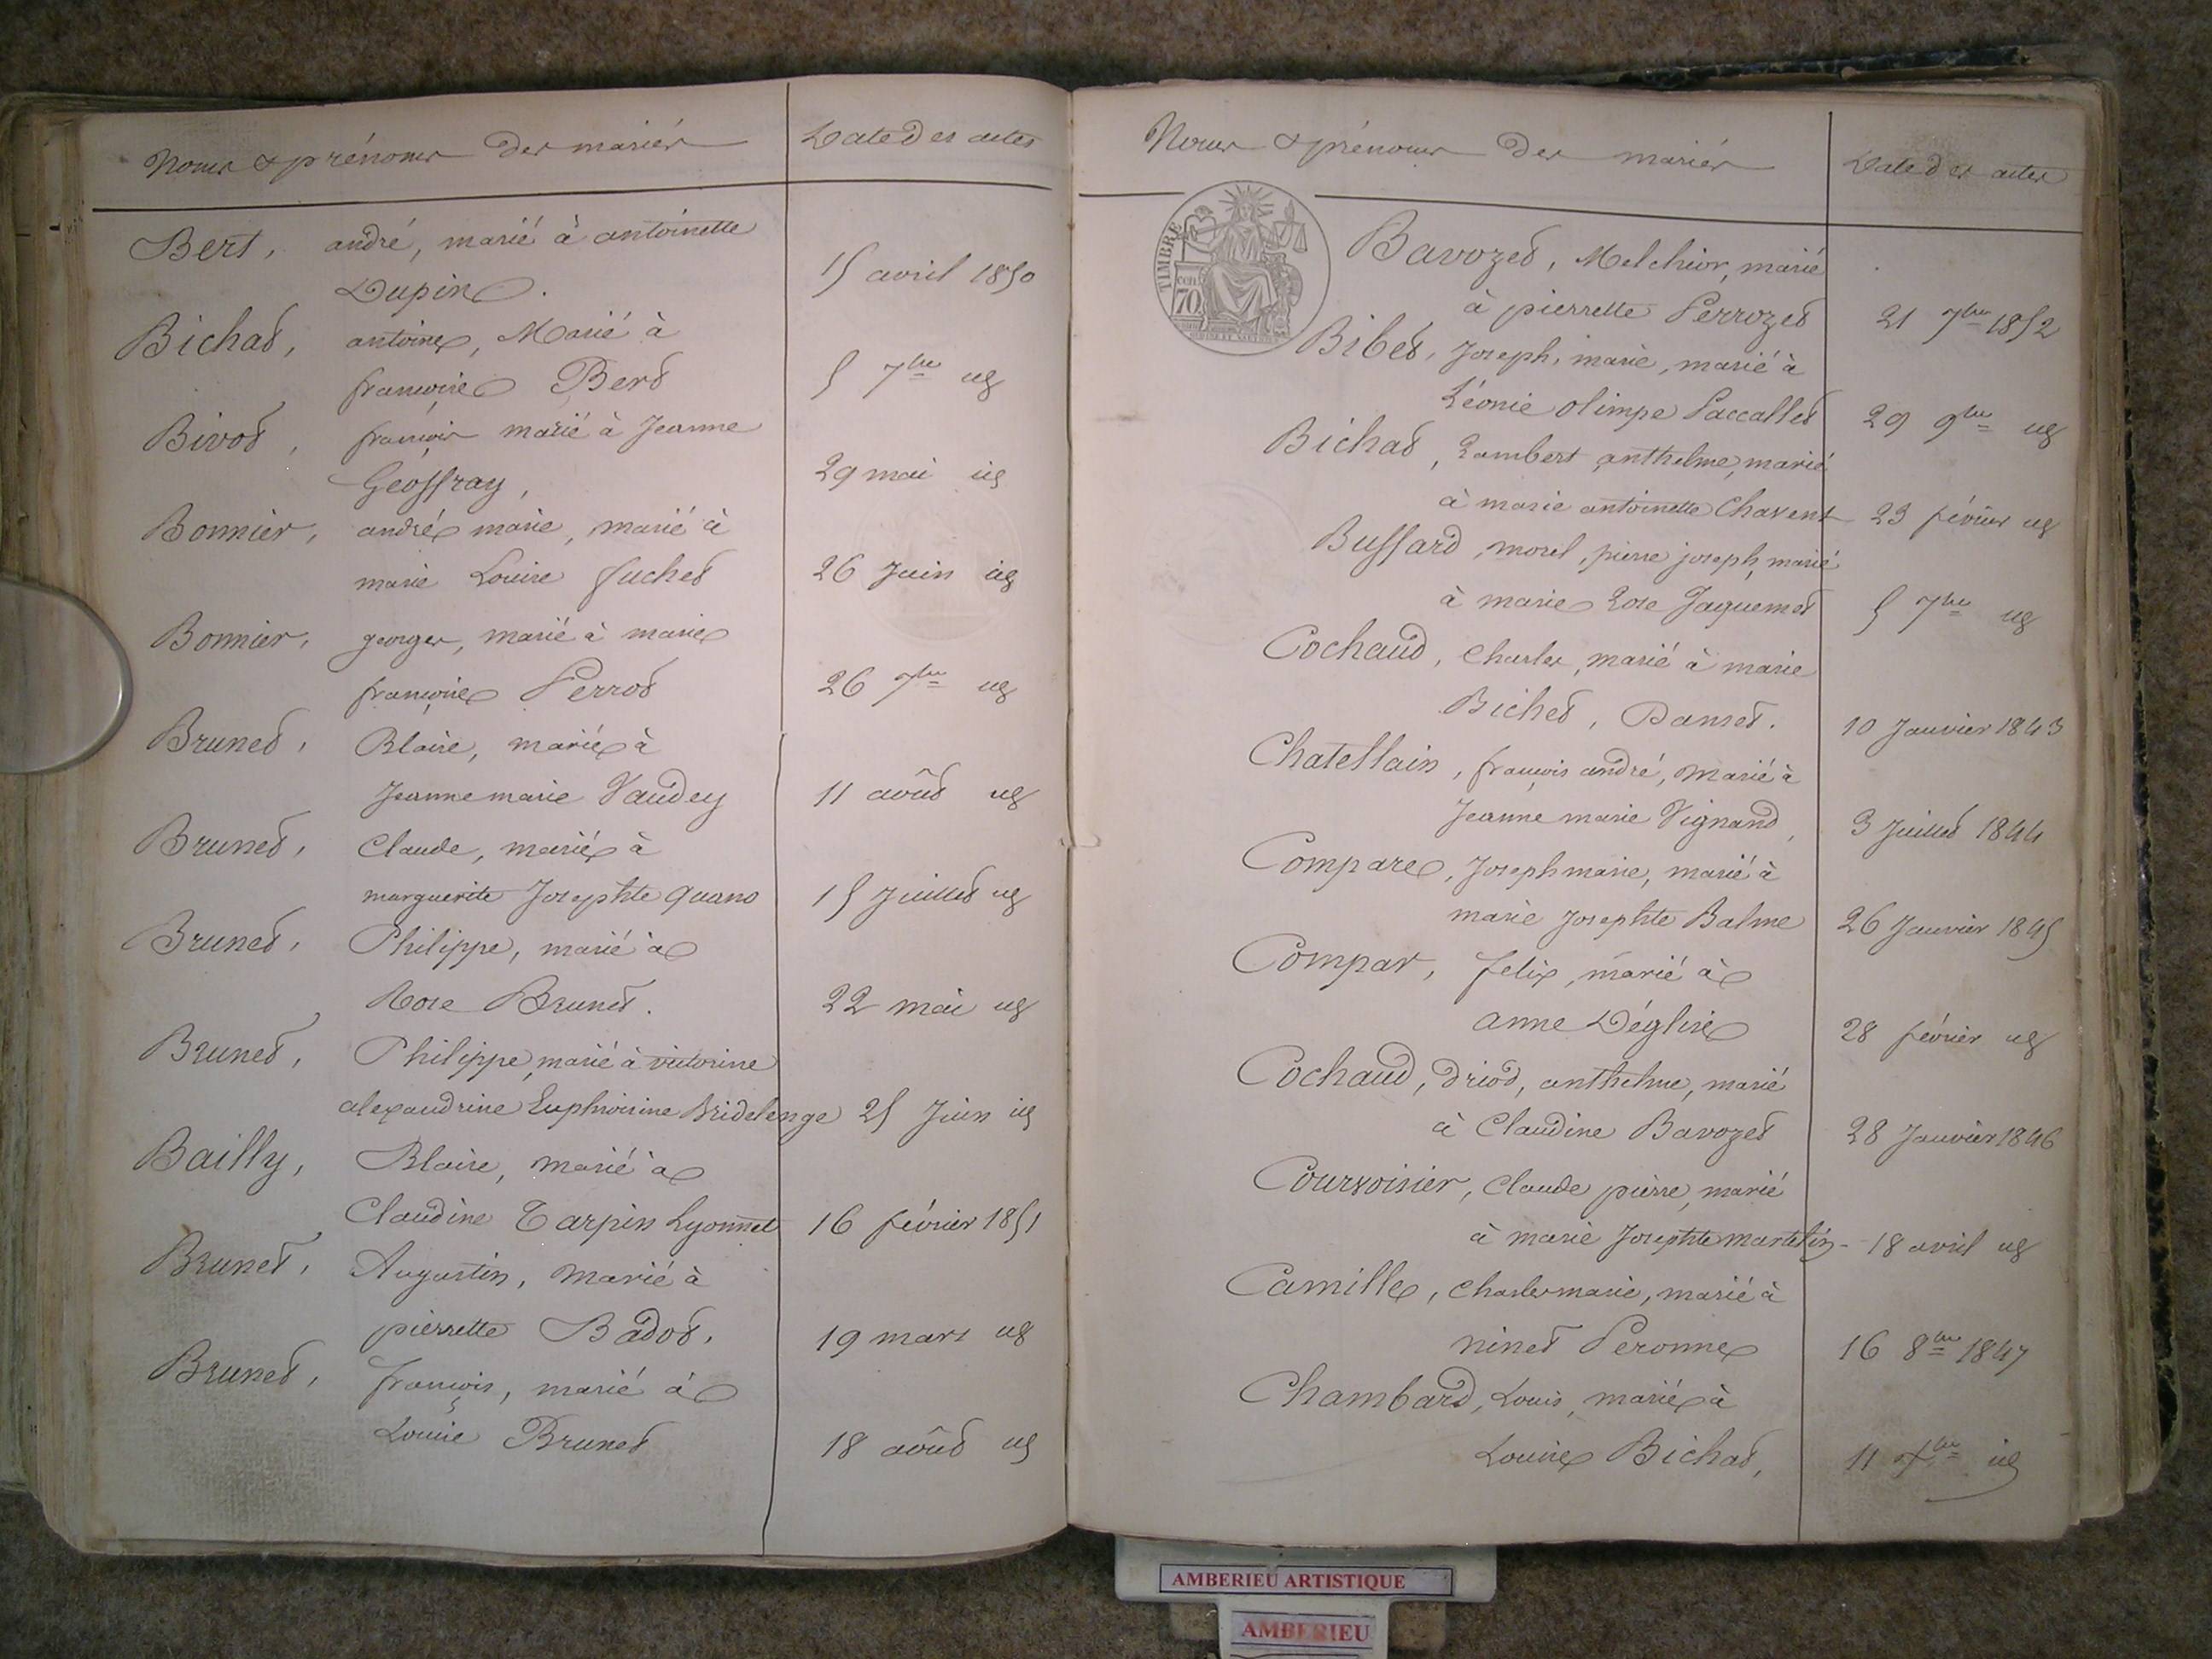 Noms & prénoms des mariés
Date des actes
Bert, andré, marié à antoinette
Dupin.
15 avril 1850
Bichat, antoine, Marié à
françoise Bert
5 7bre id
Bivot, françois marié à Jeanne
Geoffray,
29 mai id
Bonnier, andré marie, marié à
marie Louise fuchet
26 Juin id
Bonnier, georges, marié à marie
françoise Perrot
26 7bre id
Brunet, Blaise, marié à
Jeanne marie Vaudey
11 août id
Brunet, Claude, marié à
marguerite Josephte
15 Juillet id
Brunet, Philippe, marié à
Rose Brunet.
22 mai id
Brunet, Philippe, marié à victorine
alexandrine Euphroisine Bridelenge
25 Juin id
Bailly, Blaise, marié à
Claudine Tarpin Lyonnet
16 février 1851
Brunet, Augustin, marié à
pierrette Badot.
19 mars id
Brunet, françois, marié à
Louise Brunet
18 août id
Noms & prénoms des mariés
Date des actes
TIMBRE
70
Bavozet, Melchior, marié
à pierrette Perrozet
21 7bre 1852
Bibet, Joseph, marie, marié à
Léonie olimpe Paccallet
29 9bre id
Bichat, Lambert anthelme, marié
à marie antoinette Chavent
23 février id
Buffard, morel, pierre joseph, marié
à marie Rose Jaquemet
5 7bre id
Cochaud, Charles, marié à marie
Bichet, Danset.
10 Janvier 1843
Chatellain, françois andré, marié à
Jeanne marie Vignand,
3 Juillet 1844
Compare, Joseph marie, marié à
marie Josephte Balme
26 Janvier 1845
Compar, felix, marié à
anne Déglise
28 février id
Cochaud, driod, anthelme, marié
à Claudine Bavozet
28 Janvier 1846
Courvoisier, Claude pierre, marié
à marie Josephte martelin
18 avril id
Camille, Charles marie, marié à
ninet Peronne
16 8bre 1847
Chambard, Louis, marié à
Louise Bichat,
11 id
AMBERIEU ARTISTIQUE
AMBERIEU